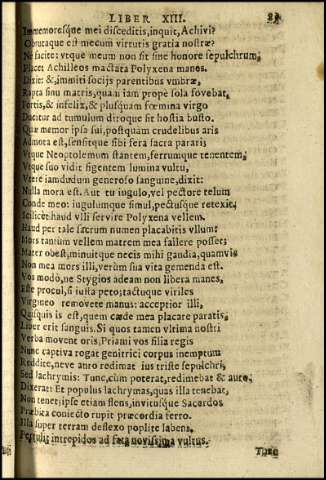 LIBER XIII.
Immemoresque mei disceditis, inquit, Achivi?
Obrutaque est mecum virtutis gratia nostræ?
Ne facite: vtque meum non sit sine honore sepulchrum,
Placet Achilleos mactata Polyxena manes.
Dixit: &, immiti socijs parentibus vmbræ,
Rapta sinu matris, quam iam prope sola fovebat,
Fortis, & infelix, & plusquam fœmina virgo
Ducitur ad tumulum diroque fit hostia busto.
Quæ memor ipsa sui, postquam crudelibus aris
Admota est, sensitque sibi fera sacra parari;
Vtque Neoptolemum stantem, ferrumque tenentem,
Vtque suo vidit figentem lumina vultu,
Vtere iamdudum generoso sanguine, dixit:
Nulla mora est. Aut tu iugulo, vel pectore telum
Conde meo: iugulumque simul, pectusque retexit,
Scilicet haud vlli servire Polyxena vellem.
Haud per tale sacrum numen placabitis vllum:
Mors tantum vellem matrem mea fallere posset;
Mater obest, minuitque necis mihi gaudia, quamvis
Non mea mors illi, verùm sua vita gemenda est.
Vos modò, ne Stygios adeam non libera manes,
Este procul, si iusta peto; tactuque viriles
Virgineo removete manus: acceptior illi,
Quisquis is est, quem cæde mea placare paratis,
Liber erit sanguis. Si quos tamen vltima nostri
Verba movent oris, Priami vos filia regis
Nunc captiva rogat genitrici corpus inemptum
Reddite, neve auro redimat ius triste sepulchri,
Sed lachrymis: Tunc, cùm poterat, redimebat & auro.
Dixerat: Et populus lachrymas, quas illa tenebat,
Non tenet; ipse etiam flens, invitusque Sacerdos
Præbita coniecto rupit præcordia ferro.
Illa super terram deflexo poplite labens,
Pertulit intrepidos ad fata novissima vultus.
Tunc